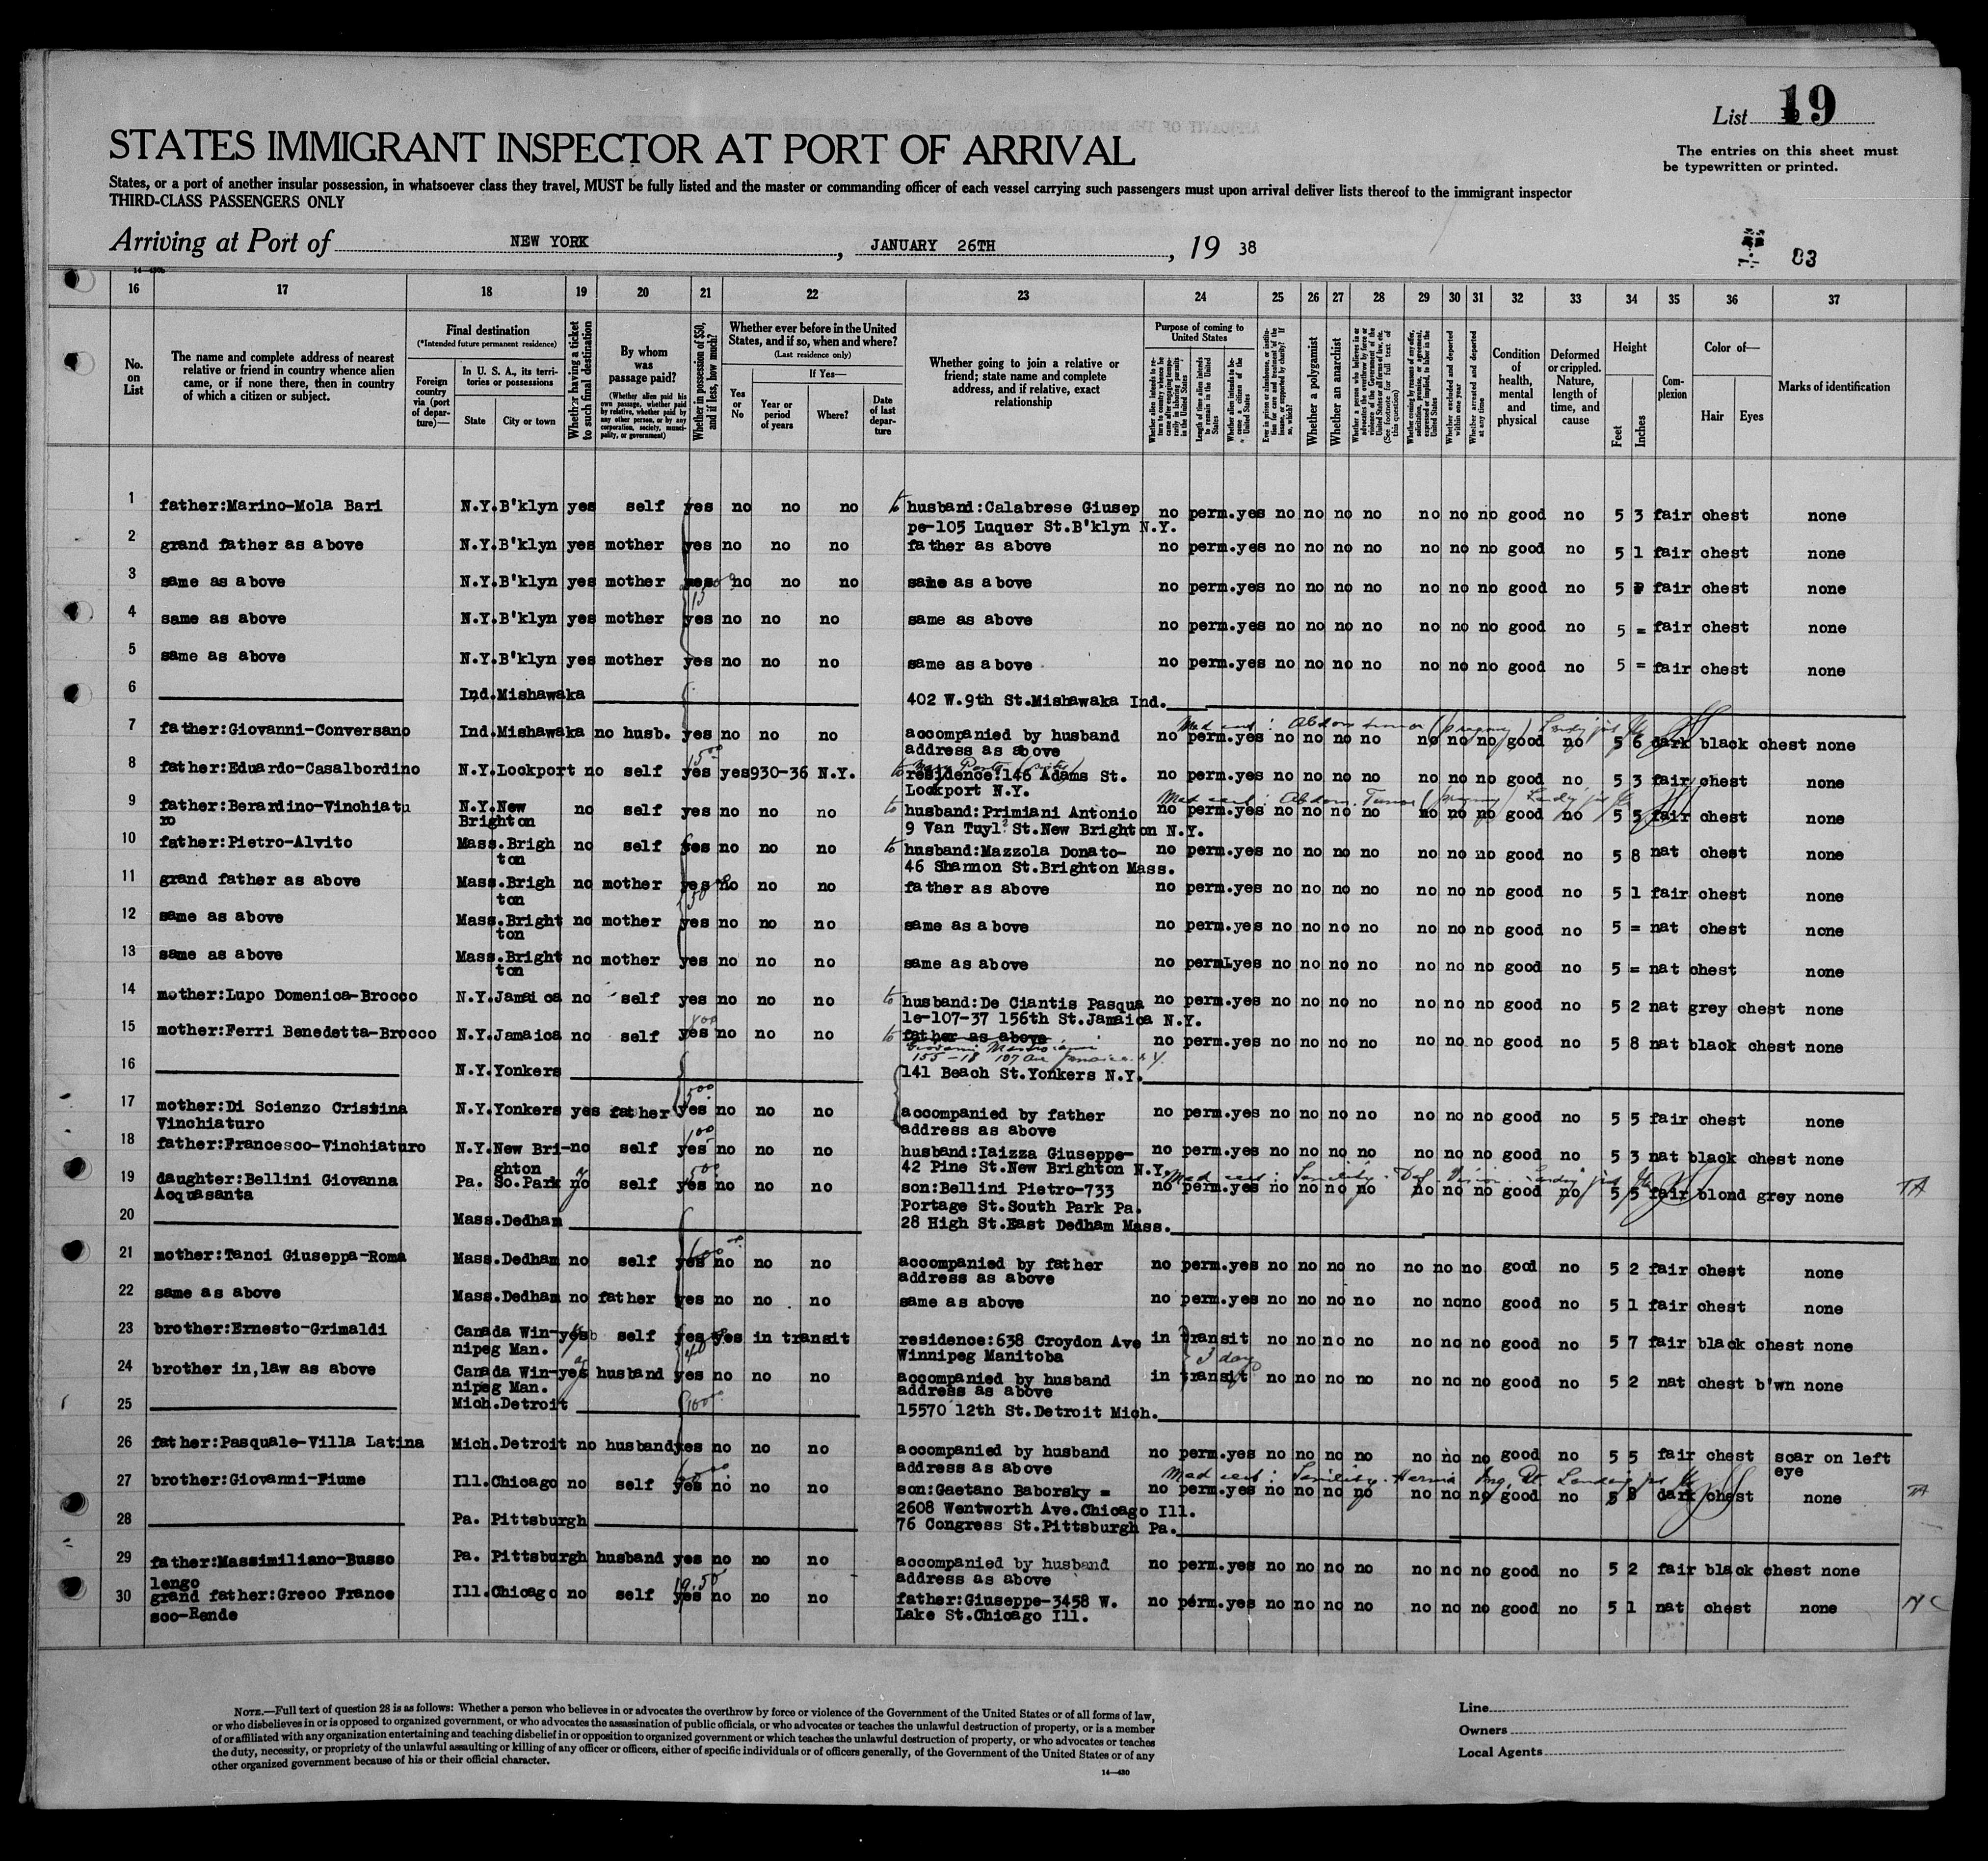 List 19
STATES IMMIGRANT INSPECTOR AT PORT OF ARRIVAL
The entries on this sheet must
be typewritten or printed.
States, or a port of another insular possession, in whatsoever class they travel, MUST be fully listed and the master or commanding officer of each vessel carrying such passengers must upon arrival deliver lists thereof to the immigrant inspector
THIRD-CLASS PASSENGERS ONLY
Arriving at Port of NEW YORK, JANUARY 26TH, 19 38
83
16 17 18 19 20 21 22 23 24 25 26 27 28 29 30 31 32 33 34 35 36 37
No. on List
The name and complete address of nearest relative or friend in country whence alien came, or if none there, then in country of which a citizen or subject.
Final destination
(*Intended future permanent residence)
Foreign country via (port of departure)—
In U. S. A., its territories or possessions
State
City or town
Whether having a ticket to such final destination
By whom was passage paid?
(Whether alien paid his own passage, whether paid by relative, whether paid by any other person, or by any corporation, society, municipality, or government)
Whether in possession of $50, and if less, how much?
Whether ever before in the United States, and if so, when and where?
(Last residence only)
Yes or No
If Yes—
Year or period of years
Where?
Date of last departure
Whether going to join a relative or friend; state name and complete address, and if relative, exact relationship
Purpose of coming to United States
Whether a polygamist
Whether an anarchist
Condition of health, mental and physical
Deformed or crippled. Nature, length of time, and cause
Height
Feet
Inches
Complexion
Color of—
Hair
Eyes
Marks of identification
1 father:Marino-Mola Bari N.Y. B'klyn yes self yes no no no to husband:Calabrese Giusep no perm. yes no no no no no no no good no 5 3 fair chest none
pe-105 Luquer St.B'klyn N.Y.
2 grand father as above N.Y. B'klyn yes mother yes no no no father as above no perm. yes no no no no no no no good no 5 1 fair chest none
3 same as above N.Y. B'klyn yes mother yes no no no same as above no perm. yes no no no no no no no good no 5 fair chest none
4 same as above N.Y. B'klyn yes mother yes no no no same as above no perm. yes no no no no no no no good no 5 = fair chest none
5 same as above N.Y. B'klyn yes mother yes no no no same as above no perm. yes no no no no no no no good no 5 = fair chest none
6 Ind. Mishawaka 402 W.9th St.Mishawaka Ind.
7 father:Giovanni-Conversano Ind. Mishawaka no husb. yes no no no accompanied by husband no perm. yes no no no no no no no good no 5 6 dark black chest none
address as above
8 father:Eduardo-Casalbordino N.Y. Lockport no self yes yes 930-36 N.Y. to residence:146 Adams St. no perm. yes no no no no no no no good no 5 3 fair chest none
Lockport N.Y.
9 father:Berardino-Vinchiatu N.Y. New no self yes no no no to husband:Primiani Antonio no perm. yes no no no no no no no good no 5 5 fair chest none
ro Brighton 9 Van Tuyl St.New Brighton N.Y.
10 father:Pietro-Alvito Mass. Brigh no self yes no no no to husband:Mazzola Donato- no perm. yes no no no no no no no good no 5 8 nat chest none
ton 46 Shannon St.Brighton Mass.
11 grand father as above Mass. Brigh no mother yes no no no father as above no perm. yes no no no no no no no good no 5 1 fair chest none
ton
12 same as above Mass. Bright no mother yes no no no same as above no perm. yes no no no no no no no good no 5 = nat chest none
ton
13 same as above Mass. Bright no mother yes no no no same as above no perm. yes no no no no no no no good no 5 = nat chest none
ton
14 mother:Lupo Domenica-Brocco N.Y. Jamaica no self yes no no no to husband:De Ciantis Pasqua no perm. yes no no no no no no no good no 5 2 nat grey chest none
le-107-37 156th St.Jamaica N.Y.
15 mother:Ferri Benedetta-Brocco N.Y. Jamaica no self yes no no no to father as above no perm. yes no no no no no no no good no 5 8 nat black chest none
155-18 107 Ave Jamaica N.Y.
16 N.Y. Yonkers 141 Beach St.Yonkers N.Y.
17 mother:Di Scienzo Cristina N.Y. Yonkers yes father yes no no no accompanied by father no perm. yes no no no no no no no good no 5 5 fair chest none
Vinchiaturo address as above
18 father:Francesco-Vinchiaturo N.Y. New Bri- no self yes no no no husband:Iaizza Giuseppe- no perm. yes no no no no no no no good no 5 3 nat black chest none
ghton 42 Pine St.New Brighton N.Y.
19 daughter:Bellini Giovanna Pa. So.Park no self yes no no no son:Bellini Pietro-733 no perm. yes no no no no no no no good no 5 5 fair blond grey none
Acquasanta Portage St.South Park Pa.
20 Mass. Dedham 28 High St.East Dedham Mass.
21 mother:Tanci Giuseppa-Roma Mass. Dedham no self yes no no no accompanied by father no perm. yes no no no no no no no good no 5 2 fair chest none
address as above
22 same as above Mass. Dedham no father yes no no no same as above no perm. yes no no no no no no no good no 5 1 fair chest none
23 brother:Ernesto-Grimaldi Canada Win- yes self yes yes in transit residence:638 Croydon Ave in transit no no no no no no no good no 5 7 fair black chest none
nipeg Man. Winnipeg Manitoba 3 days
24 brother in,law as above Canada Win- yes husband yes no no no accompanied by husband in transit no no no no no no no good no 5 2 nat chest b'wn none
nipeg Man. address as above
25 Mich. Detroit 15570 12th St.Detroit Mich.
26 father:Pasquale-Villa Latina Mich. Detroit no husband yes no no no accompanied by husband no perm. yes no no no no no no no good no 5 5 fair chest scar on left
address as above eye
27 brother:Giovanni-Fiume Ill. Chicago no self yes no no no son:Gaetano Baborsky = no perm. yes no no no no no no no good no 5 8 dark chest none
2608 Wentworth Ave.Chicago Ill.
28 Pa. Pittsburgh 76 Congress St.Pittsburgh Pa.
29 father:Massimiliano-Busso Pa. Pittsburgh husband yes no no no accompanied by husband no perm. yes no no no no no no no good no 5 2 fair black chest none
lengo address as above
30 grand father:Greco France Ill. Chicago no self yes no no no father:Giuseppe-3458 W. no perm. yes no no no no no no no good no 5 1 nat chest none
sco-Rende Lake St.Chicago Ill.
NOTE.—Full text of question 28 is as follows: Whether a person who believes in or advocates the overthrow by force or violence of the Government of the United States or of all forms of law,
or who disbelieves in or is opposed to organized government, or who advocates the assassination of public officials, or who advocates or teaches the unlawful destruction of property, or is a member
of or affiliated with any organization entertaining and teaching disbelief in or opposition to organized government or which teaches the unlawful destruction of property, or who advocates or teaches
the duty, necessity, or propriety of the unlawful assaulting or killing of any officer or officers, either of specific individuals or of officers generally, of the Government of the United States or of any
other organized government because of his or their official character.
14—430
Line
Owners
Local Agents